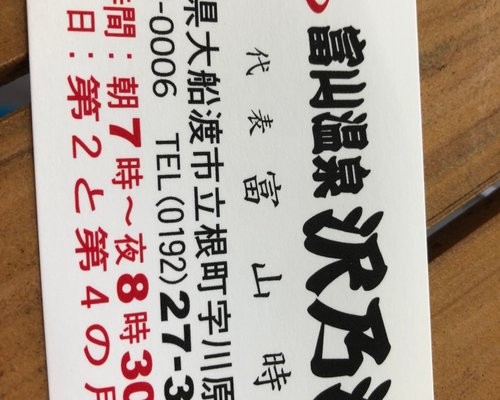 富山温泉 沢乃
代表 富山時
県大船渡市立根町字川原
-0006 TEL(0192)27-3
時間：朝7時～夜8時30
日：第2と第4の月